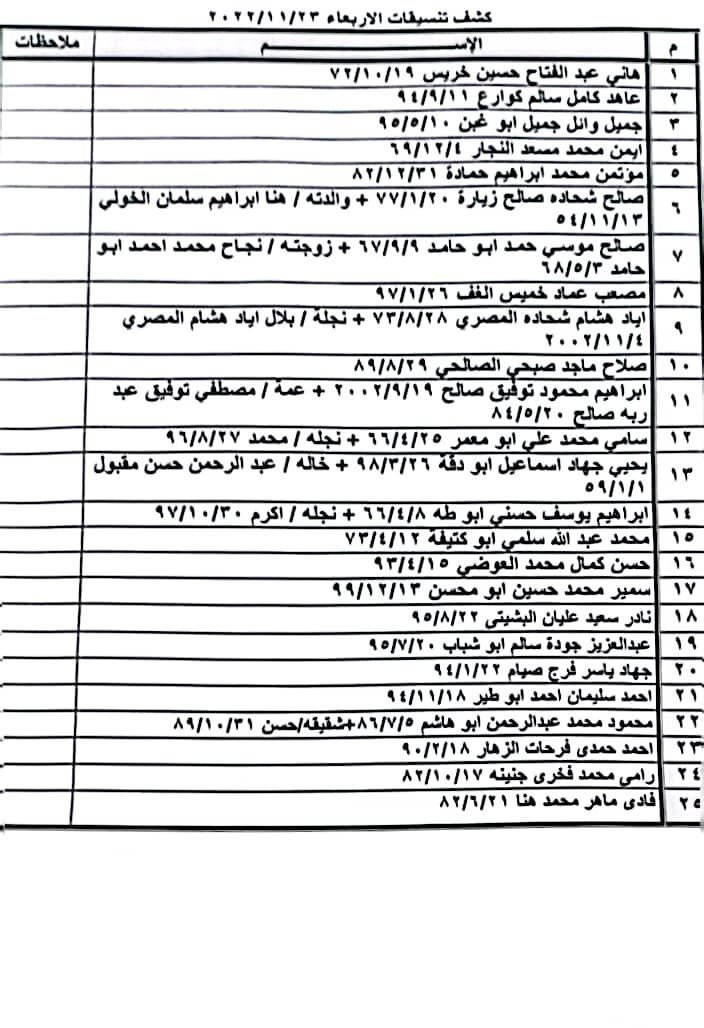 كشف تنسيقات الاربعاء ٢٠٢٢/١١/٢٣
م الإســـــــــــــم ملاحظات
١ هاني عبد الفتاح حسين خريس ٧٢/١٠/١٩
٢ عاهد كامل سالم كوارع ٩٤/٩/١١
٣ جميل وائل جميل ابو غبن ٩٥/٥/١٠
٤ ايمن محمد مسعد النجار ٦٩/١٢/٤
٥ مؤتمن محمد ابراهيم حمادة ٨٢/١٢/٣١
٦ صالح شحاده صالح زيارة ٧٧/١/٢٠ + والدته / هنا ابراهيم سلمان الخولي
٥٤/١١/١٣
٧ صالح موسي حمد ابو حامد ٦٧/٩/٩ + زوجته / نجاح محمد احمد ابو
حامد ٦٨/٥/٣
٨ مصعب عماد خميس الغف ٩٧/١/٢٦
٩ اياد هشام شحاده المصري ٧٣/٨/٢٨ + نجلة / بلال اياد هشام المصري
٢٠٠٢/١١/٤
١٠ صلاح ماجد صبحي الصالحي ٨٩/٨/٢٩
١١ ابراهيم محمود توفيق صالح ٢٠٠٢/٩/١٩ + عمة / مصطفي توفيق عبد
ربه صالح ٨٤/٥/٢٠
١٢ سامي محمد علي ابو معمر ٦٦/٤/٢٥ + نجله / محمد ٩٦/٨/٢٧
١٣ يحيي جهاد اسماعيل ابو دقة ٩٨/٣/٢٦ + خاله / عبد الرحمن حسن مقبول
٥٩/١/١
١٤ ابراهيم يوسف حسني ابو طه ٦٦/٤/٨ + نجله / اكرم ٩٧/١٠/٣٠
١٥ محمد عبد الله سلمي ابو كتيفة ٧٣/٤/١٢
١٦ حسن كمال محمد العوضي ٩٣/٤/١٥
١٧ سمير محمد حسين ابو محسن ٩٩/١٢/١٣
١٨ نادر سعيد عليان البشيتى ٩٥/٨/٢٢
١٩ عبدالعزيز جودة سالم ابو شباب ٩٥/٧/٢٠
٢٠ جهاد ياسر فرج صيام ٩٤/١/٢٢
٢١ احمد سليمان احمد ابو طير ٩٤/١١/١٨
٢٢ محمود محمد عبدالرحمن ابو هاشم ٨٦/٧/٥+شقيقه/حسن ٨٩/١٠/٣١
٢٣ احمد حمدى فرحات الزهار ٩٠/٢/١٨
٢٤ رامى محمد فخرى جنينه ٨٢/١٠/١٧
٢٥ فادى ماهر محمد هنا ٨٢/٦/٢١